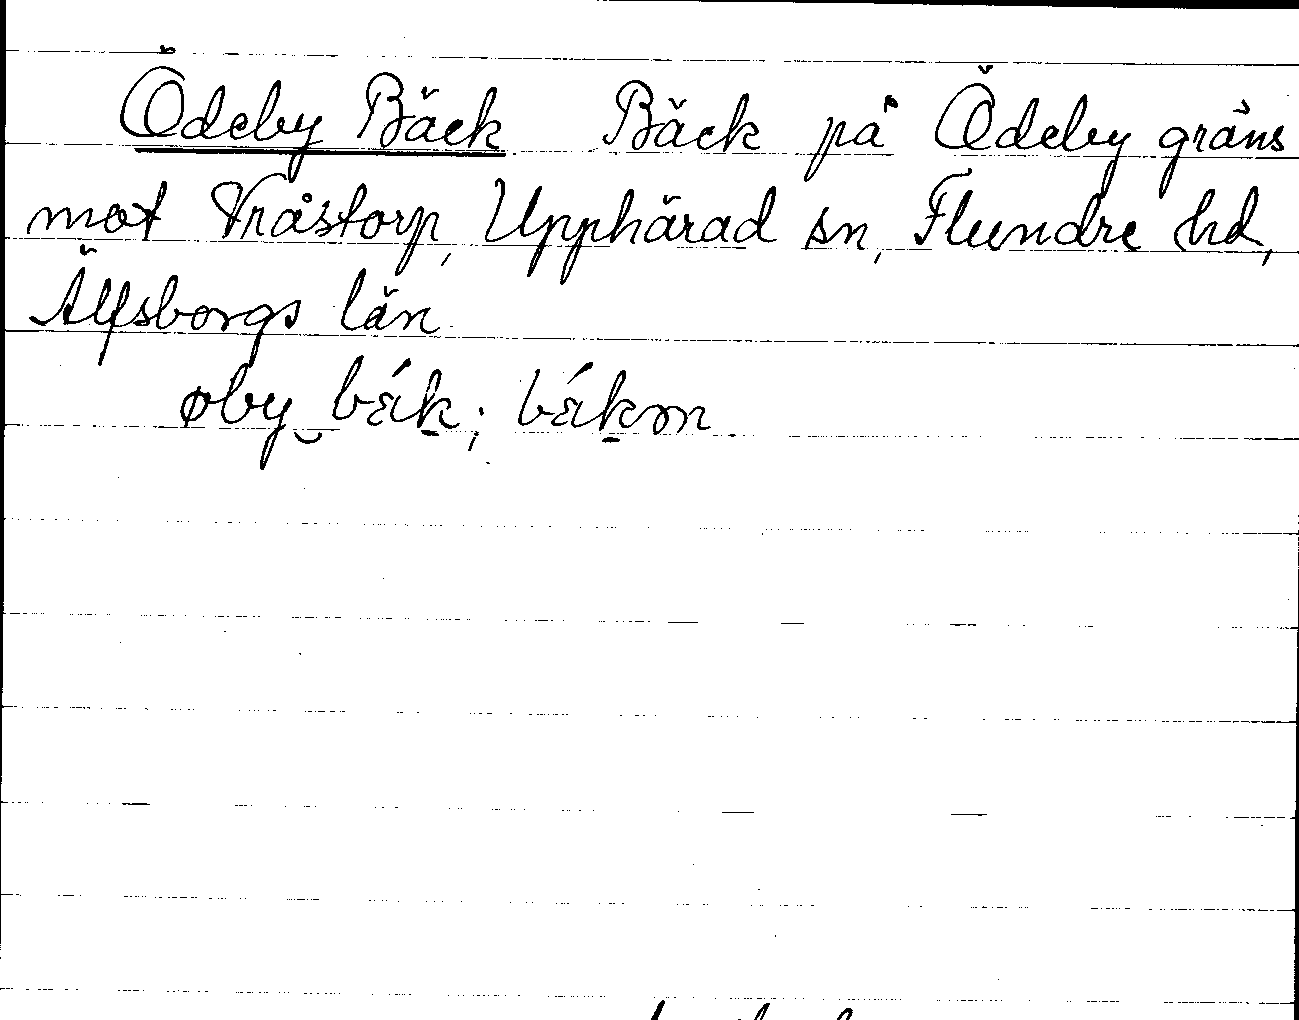 Ödeby Bäck Bäck på Ödeby gräns
mot Vråstorp, Upphärad sn, Flundre hd,
Älfsborgs län.
øby‿bǽk; bǽkən